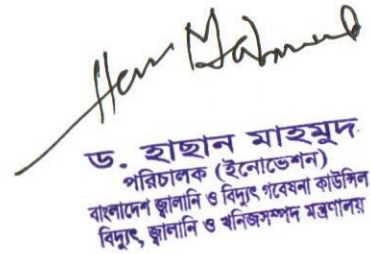 ড. হাছান মাহমুদ
পরিচালক (ইনোভেশন)
বাংলাদেশ জ্বালানি ও বিদ্যুৎ গবেষনা কাউন্সিল
বিদ্যুৎ, জ্বালানি ও খনিজসম্পদ মন্ত্রণালয়